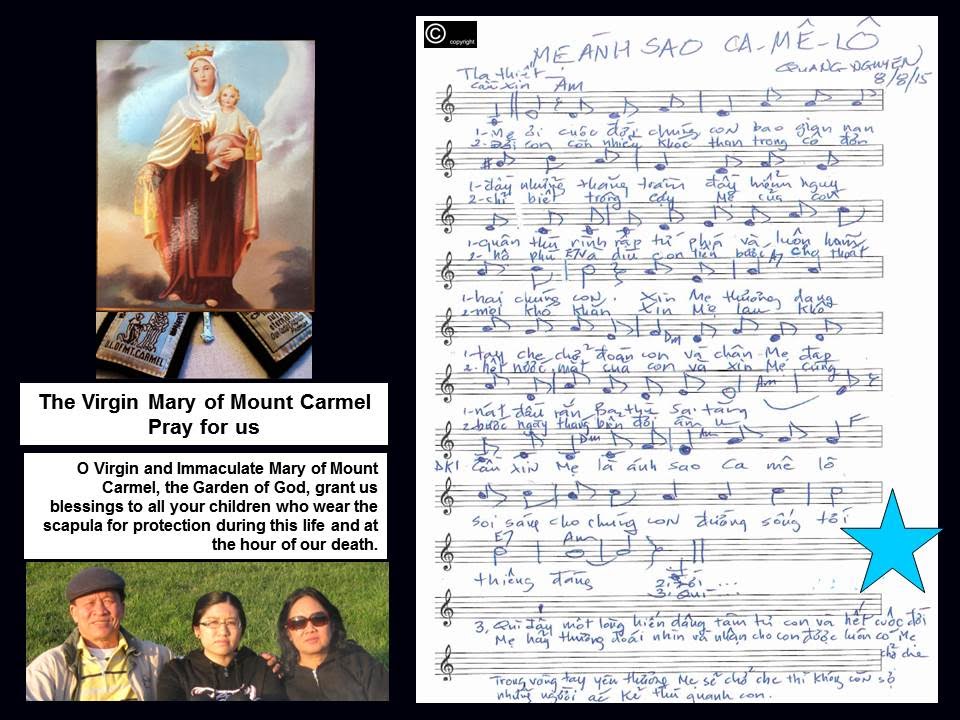 O.L. OF MT. CARMEL
The Virgin Mary of Mount Carmel
Pray for us
O Virgin and Immaculate Mary of Mount
Carmel, the Garden of God, grant us
blessings to all your children who wear the
scapula for protection during this life and at
the hour of our death.
© copyright
MẸ ÁNH SAO CA-MÊ-LÔ
QUANG-NGUYEN,
8/8/15
Tha thiết
cầu xin Am
1-Mẹ ơi cuộc đời chúng con bao gian nan
2-Đời con còn nhiều khóc than trong cô đơn
1-đầy những thăng trầm đầy hiểm nguy
2-chỉ biết trông cậy Mẹ của con
1-quân thù rình rập tứ phía và luôn hãm
2-hộ phù và dìu con tiến bước cho thoát
E7 A7
1-hại chúng con. Xin Mẹ thương dang
2-mọi khó khăn Xin Mẹ lau khô
Dm
1-tay che chở đoàn con và chân Mẹ đạp
2-hết nước mắt của con và xin Mẹ cùng
Am
1-nát đầu rắn Ba thù Sa tang
2-bước ngày tháng bên đời âm u
Dm Am F
ĐK1 Cầu xin Mẹ là ánh sao Ca mê lô
soi sáng cho chúng con đường sống tới
E7 Am
thiêng đáng
3. Quì
3, Quì đây một lòng hiến dâng tâm tư con và hết cuộc đời
Mẹ hãy thương đoái nhìn và nhận cho con được luôn có Mẹ
chở che
Trong vòng tay yêu thương Mẹ sẽ chở che thì không còn sợ
những người ác kẻ thù quanh con.